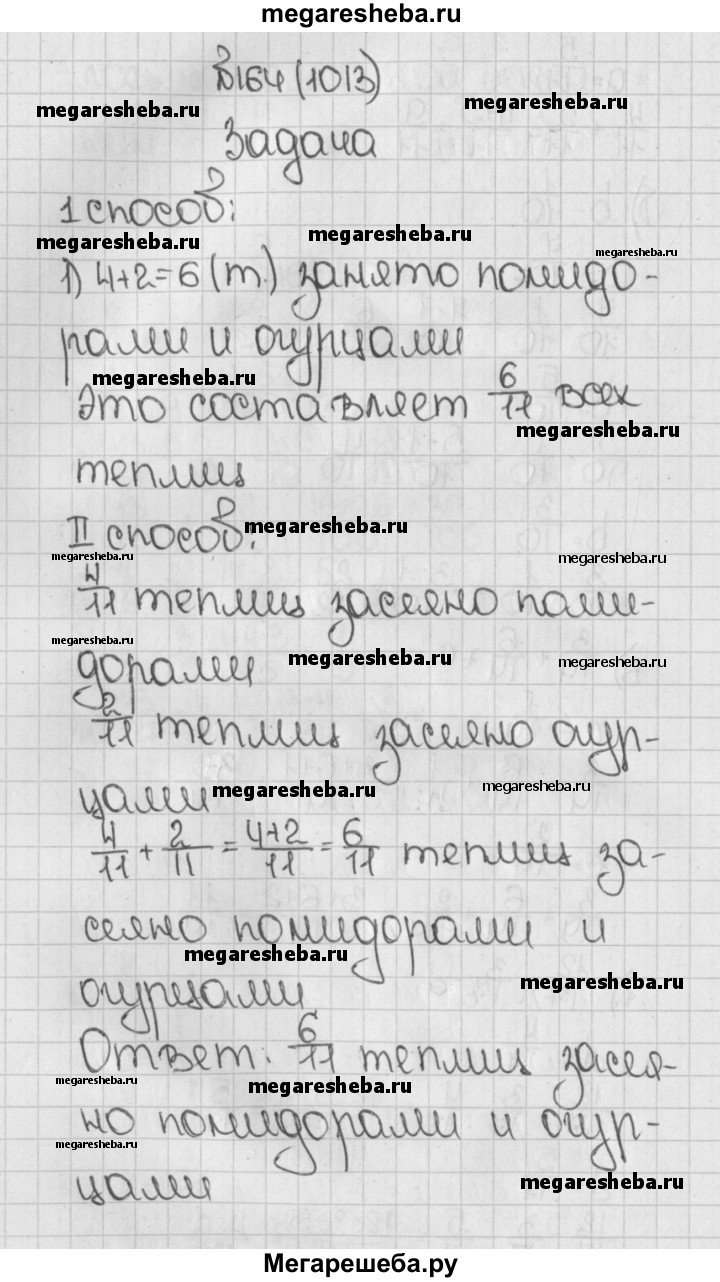 megaresheba.ru
В164 (1013)
megaresheba.ru
megaresheba.ru
Задача
1 способ:
megaresheba.ru
megaresheba.ru
megaresheba.ru
1) 4+2=6 (т.) занято помидо-
рами и огурцами
megaresheba.ru
Это составляет 6/11 всех
megaresheba.ru
теплиц
II способ.
megaresheba.ru
megaresheba.ru
megaresheba.ru
4/11 теплиц засеяно поми-
megaresheba.ru
дорами
megaresheba.ru
megaresheba.ru
2/11 теплиц засеяно огур-
цами
megaresheba.ru
megaresheba.ru
4/11 + 2/11 = 4+2/11 = 6/11 теплиц за-
сеяно помидорами и
megaresheba.ru
огурцами
megaresheba.ru
Ответ: 6/11 теплиц засея-
megaresheba.ru
megaresheba.ru
но помидорами и огур-
megaresheba.ru
цами
megaresheba.ru
Мегарешеба.ру